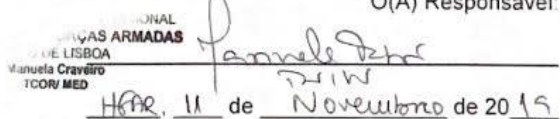 O(A) Responsável:
ONAL
ÇAS ARMADAS
DE LISBOA
Manuela Craveiro
TCOR/ MED
HFAR, 11 de Novembro de 2019